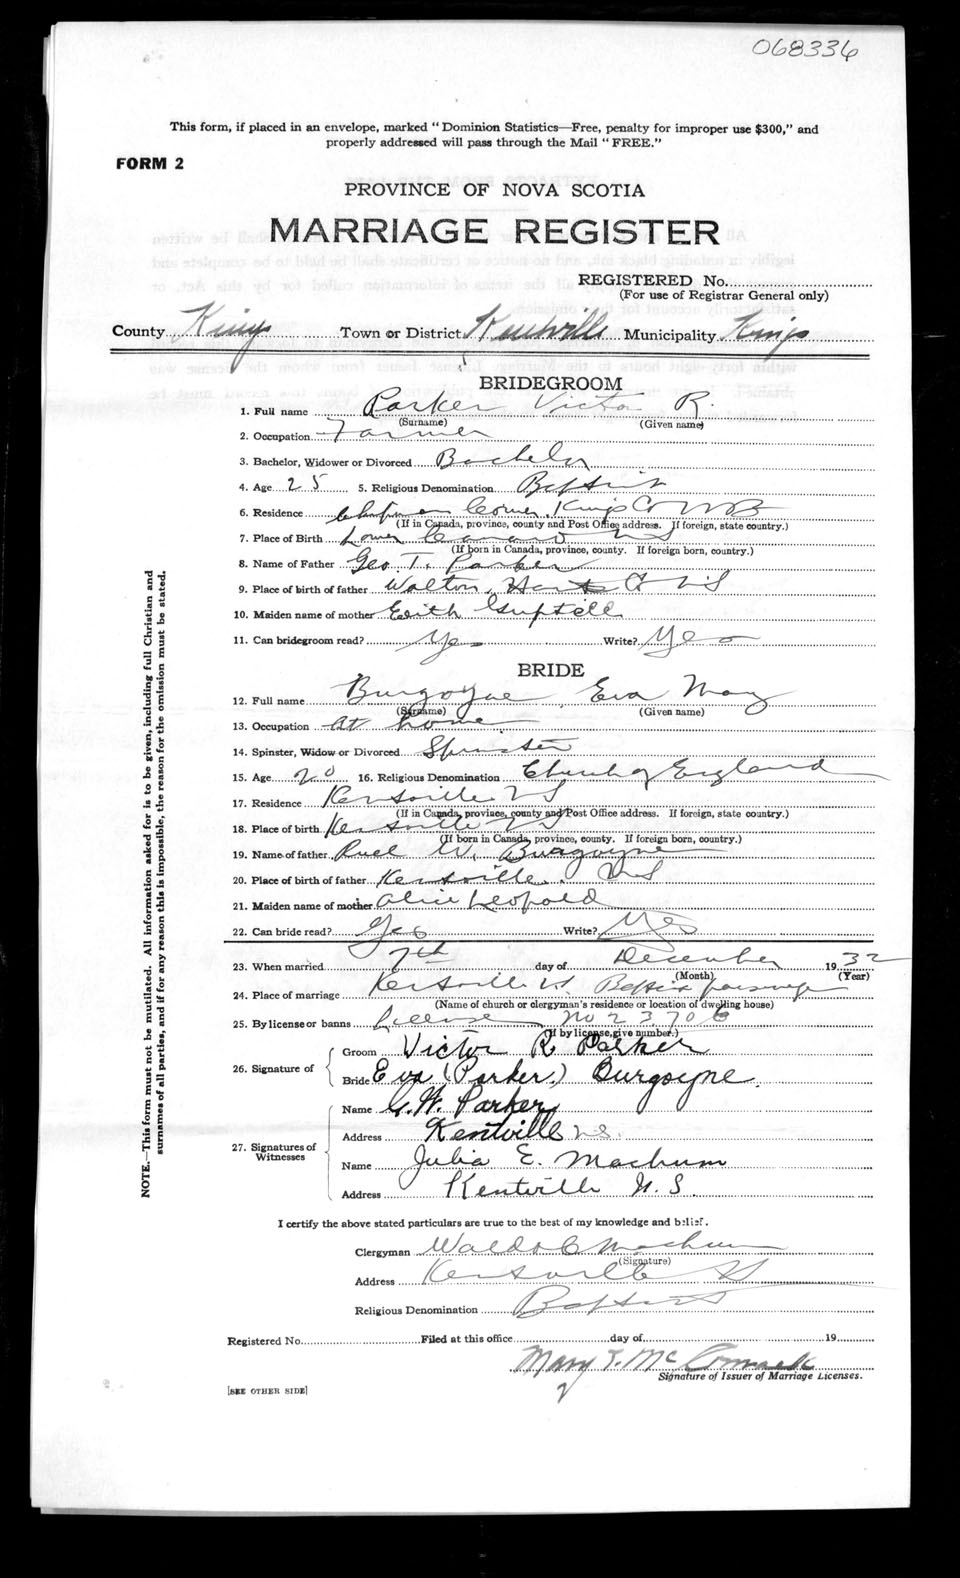 068336
This form, if placed in an envelope, marked "Dominion Statistics—Free, penalty for improper use $300," and
properly addressed will pass through the Mail "FREE."
FORM 2
PROVINCE OF NOVA SCOTIA
MARRIAGE REGISTER
REGISTERED No.
(For use of Registrar General only)
County Kings Town or District Kentville Municipality Kings
BRIDEGROOM
1. Full name Parker Victor R.
(Surname) (Given name)
2. Occupation Farmer
3. Bachelor, Widower or Divorced Bachelor
4. Age 25 5. Religious Denomination Baptist
6. Residence Corner, Kings Co
(If in Canada, province, county and Post Office address. If foreign, state country.)
7. Place of Birth Lower Canard NS
(If born in Canada, province, county. If foreign born, country.)
8. Name of Father Geo. T. Parker
9. Place of birth of father Walton, Hants Co NS
10. Maiden name of mother Edith Guptill
11. Can bridegroom read? Yes Write? Yes
BRIDE
12. Full name Burgoyne Eva May
(Surname) (Given name)
13. Occupation At home
14. Spinster, Widow or Divorced Spinster
15. Age 20 16. Religious Denomination Church of England
17. Residence Kentville NS
(If in Canada, province, county and Post Office address. If foreign, state country.)
18. Place of birth Kentville NS
(If born in Canada, province, county. If foreign born, country.)
19. Name of father Ruel W. Burgoyne
20. Place of birth of father Kentville. NS
21. Maiden name of mother Alice Leopold
22. Can bride read? Yes Write? Yes
23. When married 7th day of December 1932
(Month) (Year)
24. Place of marriage Kentville Baptist parsonage
(Name of church or clergyman's residence or location of dwelling house)
25. By license or banns License No 23706
(If by license, give number.)
26. Signature of
Groom Victor R. Parker
Bride Eva (Parker.) Burgoyne.
27. Signatures of Witnesses
Name G. W. Parker
Address Kentville N.S.
Name Julia E. Machum
Address Kentville N.S.
I certify the above stated particulars are true to the best of my knowledge and belief.
Clergyman Waldo C Machum
(Signature)
Address Kentville NS
Religious Denomination Baptist
Registered No. Filed at this office day of 19
Mary T. McCormack
Signature of Issuer of Marriage Licenses.
[SEE OTHER SIDE]
NOTE.—This form must not be mutilated. All information asked for is to be given, including full Christian and
surnames of all parties, and if for any reason this is impossible, the reason for the omission must be stated.